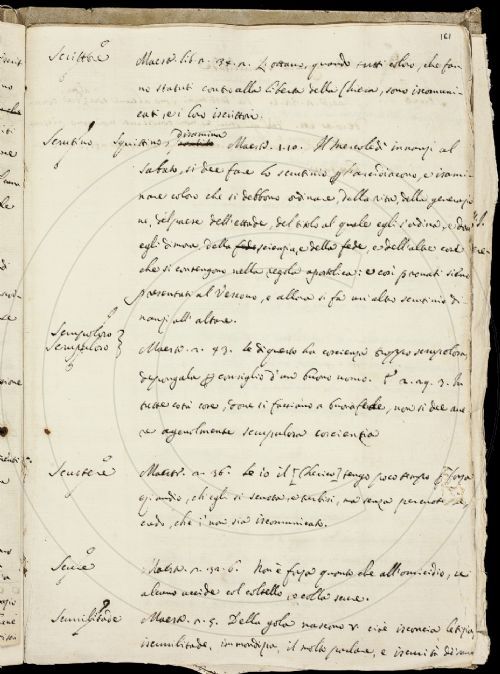 161
Scrittore Maestr. lib. 2. 34. 2. L'ottavo, quando tutti coloro, che fan-
no statuti contro alla libertà della Chiesa, sono iscomuni-
cati, e i loro iscrittori.
Scrutino, Squittino, Disamina Maestr. 1. 10. Il Mercoledì innanzi al
Sabato, si dee fare lo scrutinio Arcidiacono, e isami-
nare coloro che si debbono ordinare, della vita, della generazio
ne, del paese dell'etade, del titolo al quale egli s'ordina, e dove
egli dimora, della scienzia, e della fede, e dell'altre cose
che si contengono nella regola apostolica: e così provati sieno
presentati al Vescovo, e allora si fa un altro scrutinio di-
nanzi all'altare.
Scrupoloso
Scrupuloso Maestr. 2. 43. Se di questo ha coscienza troppo scrupolosa,
dipongala consiglio d'un buono uomo. 2. 29. 3. In
tutte cose, dove si facciano a buona fede, non si dee ave
re agevolmente scrupolosa coscienzia
Scuotere Maestr. 2. 36. Se io il [Cherico] tengo poco tempo forza
quando, ch'egli si scuota, e turbisi, ma senza percuotere
credo, che i' non sia iscomunicato.
Scure Maestr. 2. 32. 6. Non è forza quanto che all'omicidio, se
alcuno uccide col coltello, o colla scure.
Scurrilitade Maestr. 2. 5. Della gola nascono v. cioè isconcia letizia,
iscurrilitade, immondizia, il molto parlare, e